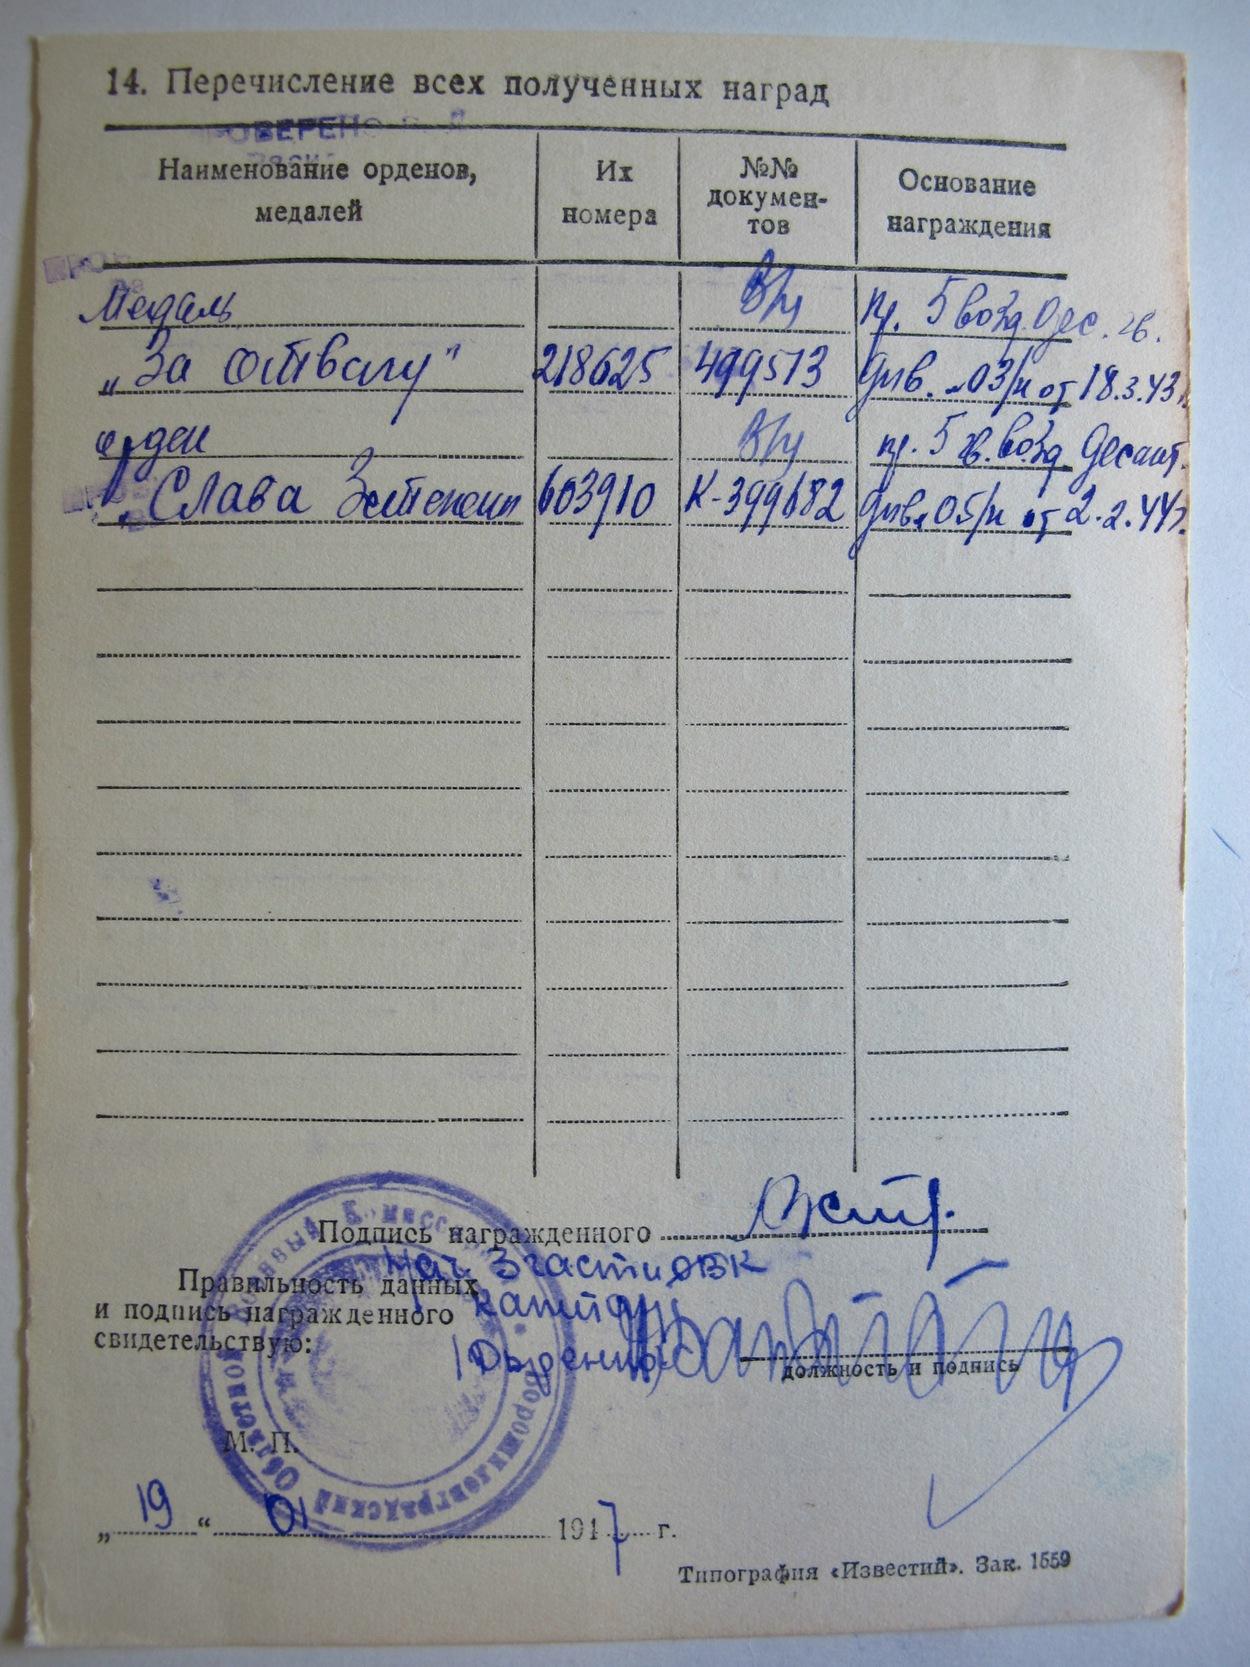 14. Перечисление всех полученных наград
ПРОВЕРЕНО
Наименование орденов, медалей
Их номера
№№ докумен-тов
Основание награждения
Медаль В/у пр. 5 возд. дес. гв.
„За отвагу" 218625 499513 див. 03/н от 18.3.43 г.
орден В/у пр. 5 гв. возд. десант.
„Слава 3 степени 603910 К-399682 див. 05/н от 2.2.44 г.
Подпись награжденного
Нач. 3 части ОВК
Правильность данных
и подпись награжденного
свидетельствую:
капитан
должность и подпись
М. П.
Ворошиловградский Областной Военный Комиссариат
„19“ 01 1947 г.
Типография «Известий». Зак. 1559